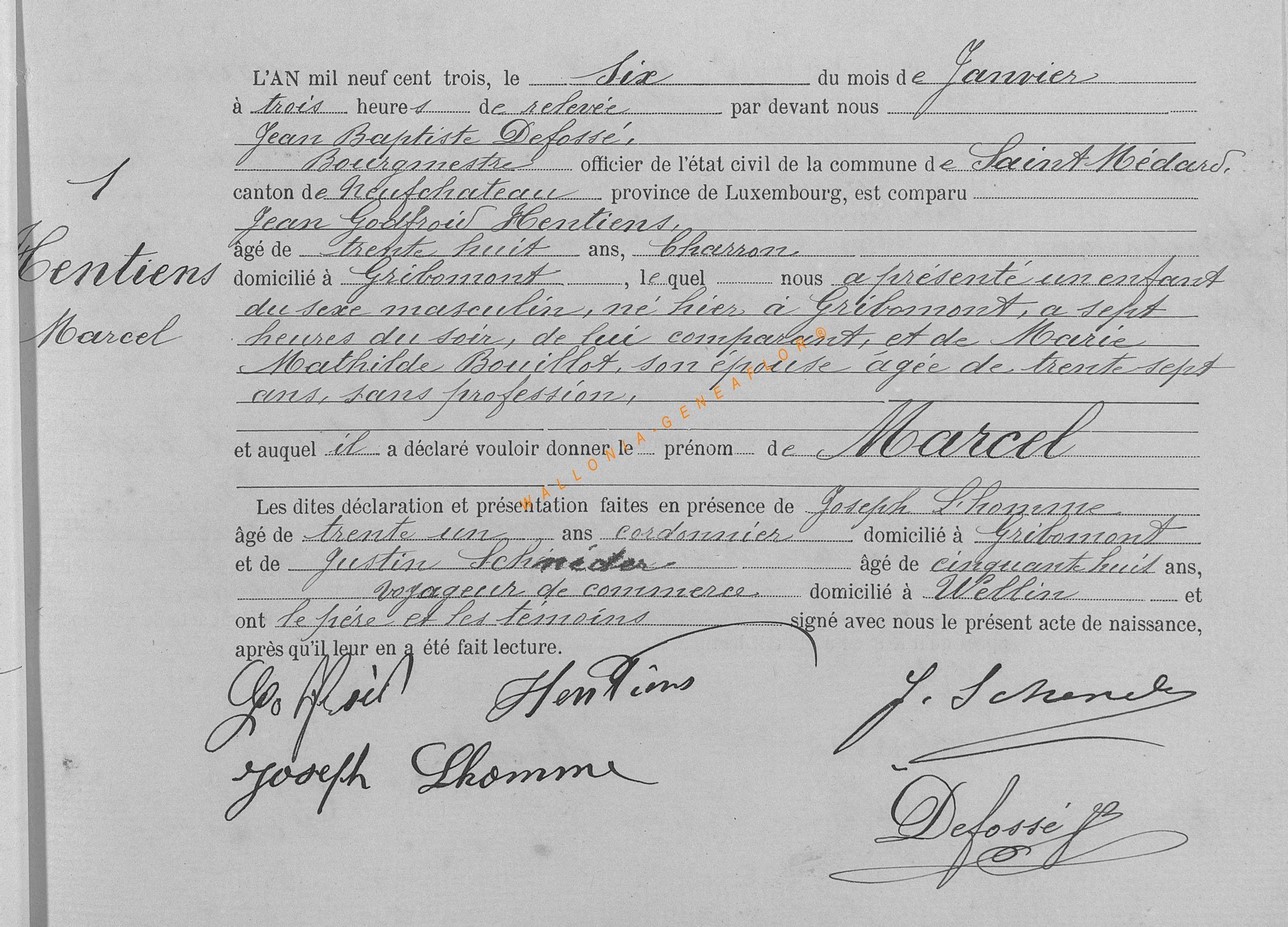 L'AN mil neuf cent trois, le six du mois de Janvier
à trois heures de relevée par devant nous
Jean Baptiste Defossé,
Bourgmestre officier de l'état civil de la commune de Saint Médard,
1
canton de Neufchateau province de Luxembourg, est comparu
Jean Godfroid Hentiens,
âgé de trente huit ans, Charron
Hentiens
domicilié à Gribomont, lequel nous a présenté un enfant
du sexe masculin, né hier à Gribomont, a sept
Marcel
heures du soir, de lui comparant, et de Marie
Mathilde Bouillot, son épouse âgée de trente sept
ans, sans profession,
et auquel il a déclaré vouloir donner le prénom de Marcel
Les dites déclaration et présentation faites en présence de Joseph Lhomme
âgé de trente un ans cordonnier domicilié à Gribomont
et de Justin Schneider âgé de cinquante huit ans,
voyageur de commerce domicilié à Wellin et
ont le père et les témoins signé avec nous le présent acte de naissance,
après qu'il leur en a été fait lecture.
Hentiens J.
Joseph Lhomme
Defossé JB
WALLONIA-GENEAFLOR®